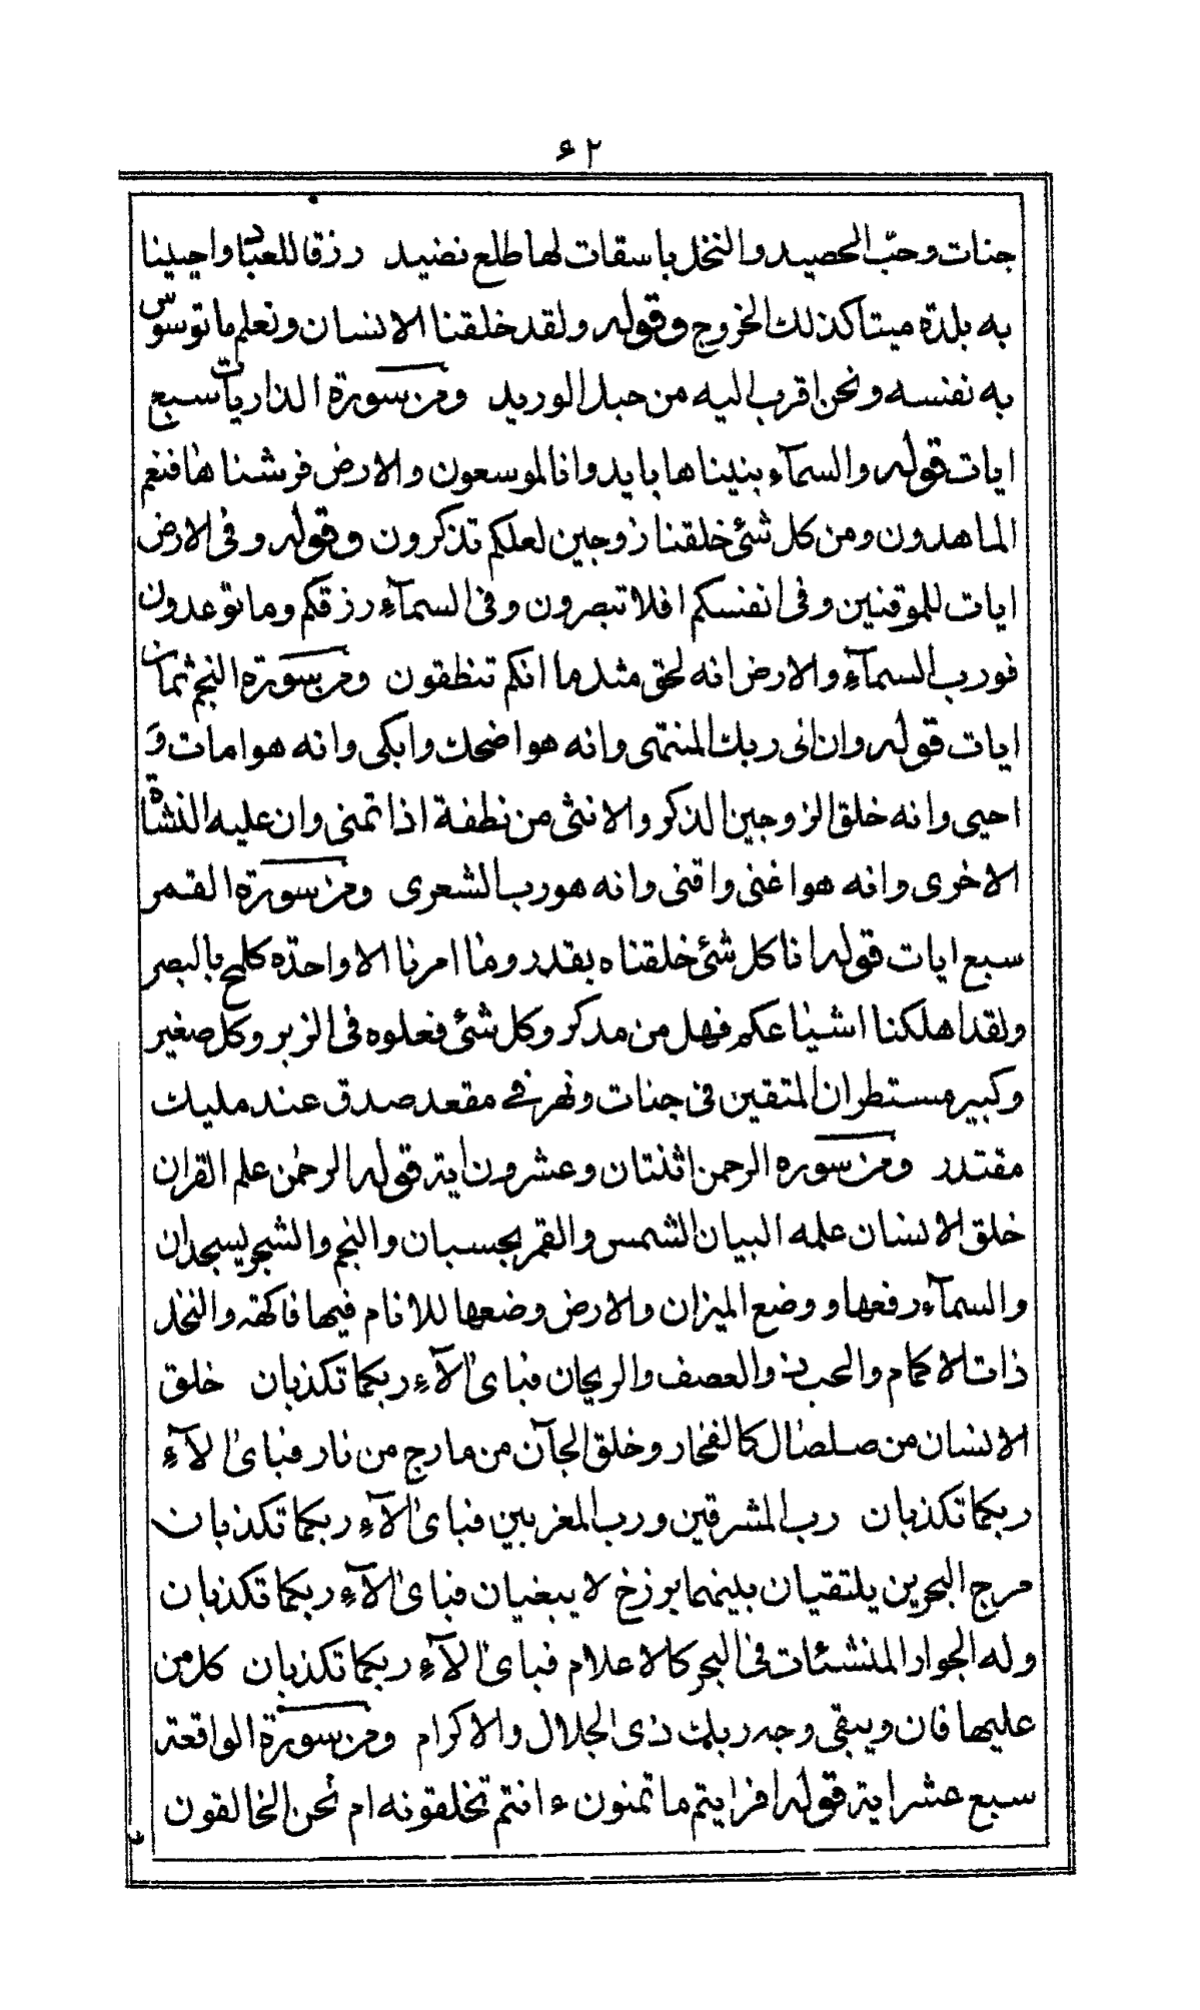 ٤٢
جنات وحبّ الحصيد والنخل باسقات لها طلع نضيد رزقا للعباد واحيينا
به بلدة ميتا كذلك الخروج وقوله ولقد خلقنا الانسان ونعلم ما توسوس
به نفسه ونحن اقرب اليه من حبل الوريد ومن سورة الذاريات سبع
ايات قوله والسمآء بنيناها بايد وانا لموسعون والارض فرشناها فنعم
الماهدون ومن كل شئ خلقنا زوجين لعلكم تذكرون وقوله وفى الارض
ايات للموقنين وفى انفسكم افلا تبصرون وفى السمآء رزقكم وما توعدون
فورب السمآء والارض انه لحق مثل ما انكم تنطقون ومن سورة النجم ثمان
ايات قوله وان الى ربك المنتهى وانه هو اضحك وابكى وانه هو امات و
احيى وانه خلق الزوجين الذكر والانثى من نطفة اذا تمنى وان عليه النشاة
الاخرى وانه هو اغنى واقنى وانه هو رب الشعرى ومن سورة القمر
سبع ايات قوله انا كل شئ خلقناه بقدر وما امرنا الا واحدة كلمح بالبصر
ولقد اهلكنا اشياعكم فهل من مدكر وكل شئ فعلوه فى الزبر وكل صغير
وكبير مستطر ان المتقين فى جنات ونهر فے مقعد صدق عند مليك
مقتدر ومن سوره الرحمن اثنتان وعشرون اية قوله الرحمٰن علم القران
خلق الانسان علمه البيان الشمس والقمر بحسبان والنجم والشجر يسجدان
والسمآء رفعها و وضع الميزان والارض وضعها للانام فيها فاكهة والنخل
ذات الاكمام والحب ذو العصف والريحان فباى الآء ربكما تكذبان خلق
الانسان من صلصال كالفخار وخلق الجآن من مارج من نار فباى الآء
ربكما تكذبان رب المشرقين ورب المغربين فباى الآء ربكما تكذبان
مرج البحرين يلتقيان بينهما برزخ لا يبغيان فباى الآء ربكما تكذبان
وله الجوار المنشئات فى البحر كالاعلام فباى الآء ربكما تكذبان كل من
عليها فان ويبقى وجه ربك ذى الجلال والاكرام ومن سورة الواقعة
سبع عشر اية قوله افرايتم ما تمنون ءانتم تخلقونه ام نحن الخالقون